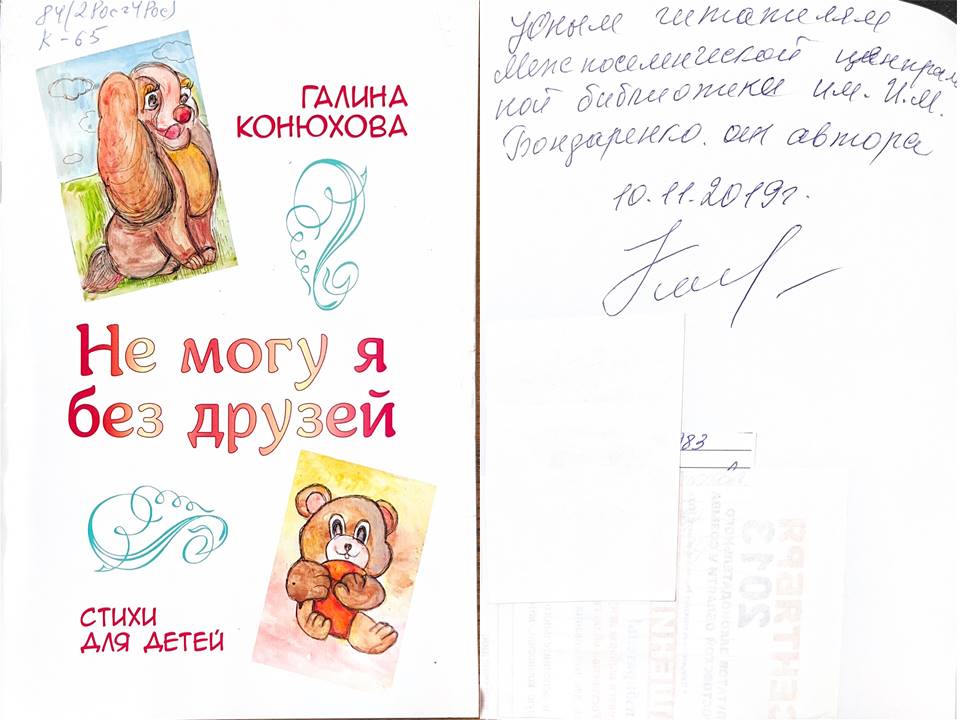 84(2Рос=4Рос)
К-65
ГАЛИНА
КОНЮХОВА
Не могу я
без друзей
СТИХИ
ДЛЯ ДЕТЕЙ
Юным читателям
Межпоселенческой централь
ной библиотеки им. И.М.
Бондаренко. от автора
10.11.2019г.
983
2013
СЕНТЯБРЯ